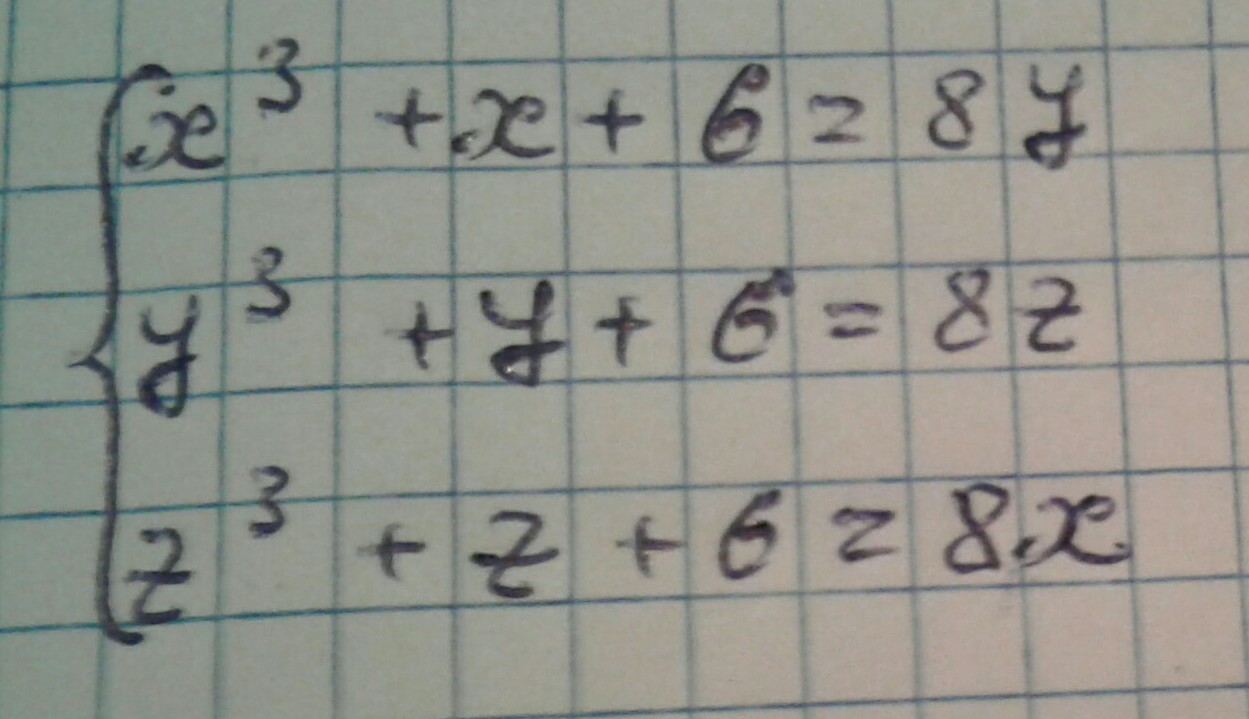 x³ + x + 6 = 8y
y³ + y + 6 = 8z
z³ + z + 6 = 8x